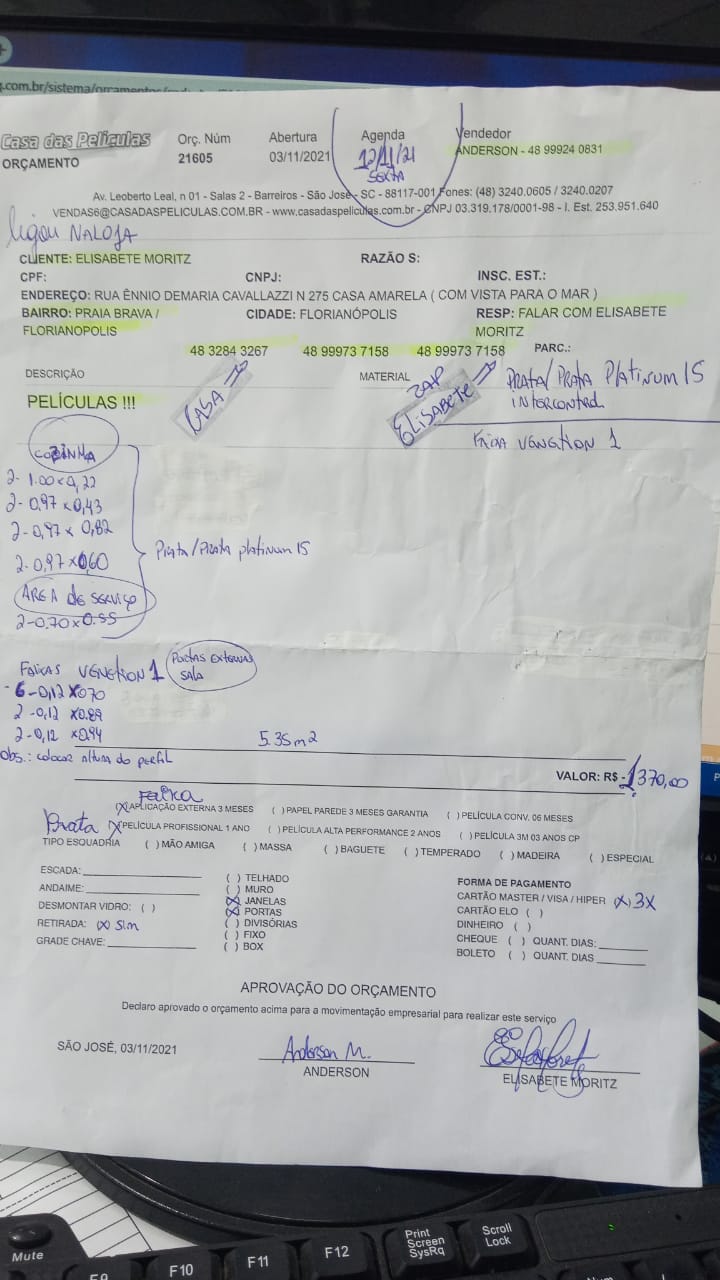 .com.br/sistema/orcamentos/
Casa das Películas
ORÇAMENTO
Orç. Núm
21605
Abertura
03/11/2021
Agenda
12/11/21
SEXTA
Vendedor
ANDERSON - 48 99924 0831
Av. Leoberto Leal, n 01 - Salas 2 - Barreiros - São José - SC - 88117-001 Fones: (48) 3240.0605 / 3240.0207
VENDAS6@CASADASPELICULAS.COM.BR - www.casadaspeliculas.com.br - CNPJ 03.319.178/0001-98 - I. Est. 253.951.640
ligou NA LOJA
CLIENTE: ELISABETE MORITZ
RAZÃO S:
CPF:
CNPJ:
INSC. EST.:
ENDEREÇO: RUA ÊNNIO DEMARIA CAVALLAZZI N 275 CASA AMARELA ( COM VISTA PARA O MAR )
BAIRRO: PRAIA BRAVA /
FLORIANOPOLIS
CIDADE: FLORIANÓPOLIS
RESP: FALAR COM ELISABETE
MORITZ
48 3284 3267 48 99973 7158 48 99973 7158 PARC.:
DESCRIÇÃO
MATERIAL
CASA
ZAP
ELISABETE
PRATA/PRATA PLATINUM 15
INTERCONTROL
FAIXA VENETION 1
PELÍCULAS !!!
COZINHA
2- 1.00 x 0,22
2- 0,97 x 0,43
2- 0,97 x 0,82
2- 0,97 x 0,60
Prata/Prata platinum 15
AREA de SERVIÇO
2- 0,70 x 0.55
FAIXAS VENETION 1
PORTAS EXTERNAS
SALA
- 6 - 0,12 x 070
2 - 0,12 x 0.89
2 - 0,12 x 0.94
5.35 m2
Obs.: colocar altura do perfil
VALOR: R$ 1370,00
FAIXA
(X) APLICAÇÃO EXTERNA 3 MESES ( ) PAPEL PAREDE 3 MESES GARANTIA ( ) PELÍCULA CONV. 06 MESES
Prata (X) PELÍCULA PROFISSIONAL 1 ANO ( ) PELÍCULA ALTA PERFORMANCE 2 ANOS ( ) PELÍCULA 3M 03 ANOS CP
TIPO ESQUADRIA ( ) MÃO AMIGA ( ) MASSA ( ) BAGUETE ( ) TEMPERADO ( ) MADEIRA ( ) ESPECIAL
ESCADA:
ANDAIME:
DESMONTAR VIDRO: ( )
RETIRADA: (X) SIM
GRADE CHAVE:
( ) TELHADO
( ) MURO
(X) JANELAS
(X) PORTAS
( ) DIVISÓRIAS
( ) FIXO
( ) BOX
FORMA DE PAGAMENTO
CARTÃO MASTER / VISA / HIPER (X) 3X
CARTÃO ELO ( )
DINHEIRO ( )
CHEQUE ( ) QUANT. DIAS:
BOLETO ( ) QUANT. DIAS
APROVAÇÃO DO ORÇAMENTO
Declaro aprovado o orçamento acima para a movimentação empresarial para realizar este serviço
SÃO JOSÉ, 03/11/2021
Anderson M.
ANDERSON
ELISABETE MORITZ
Mute
F9
F10
F11
F12
Print
Screen
SysRq
Scroll
Lock